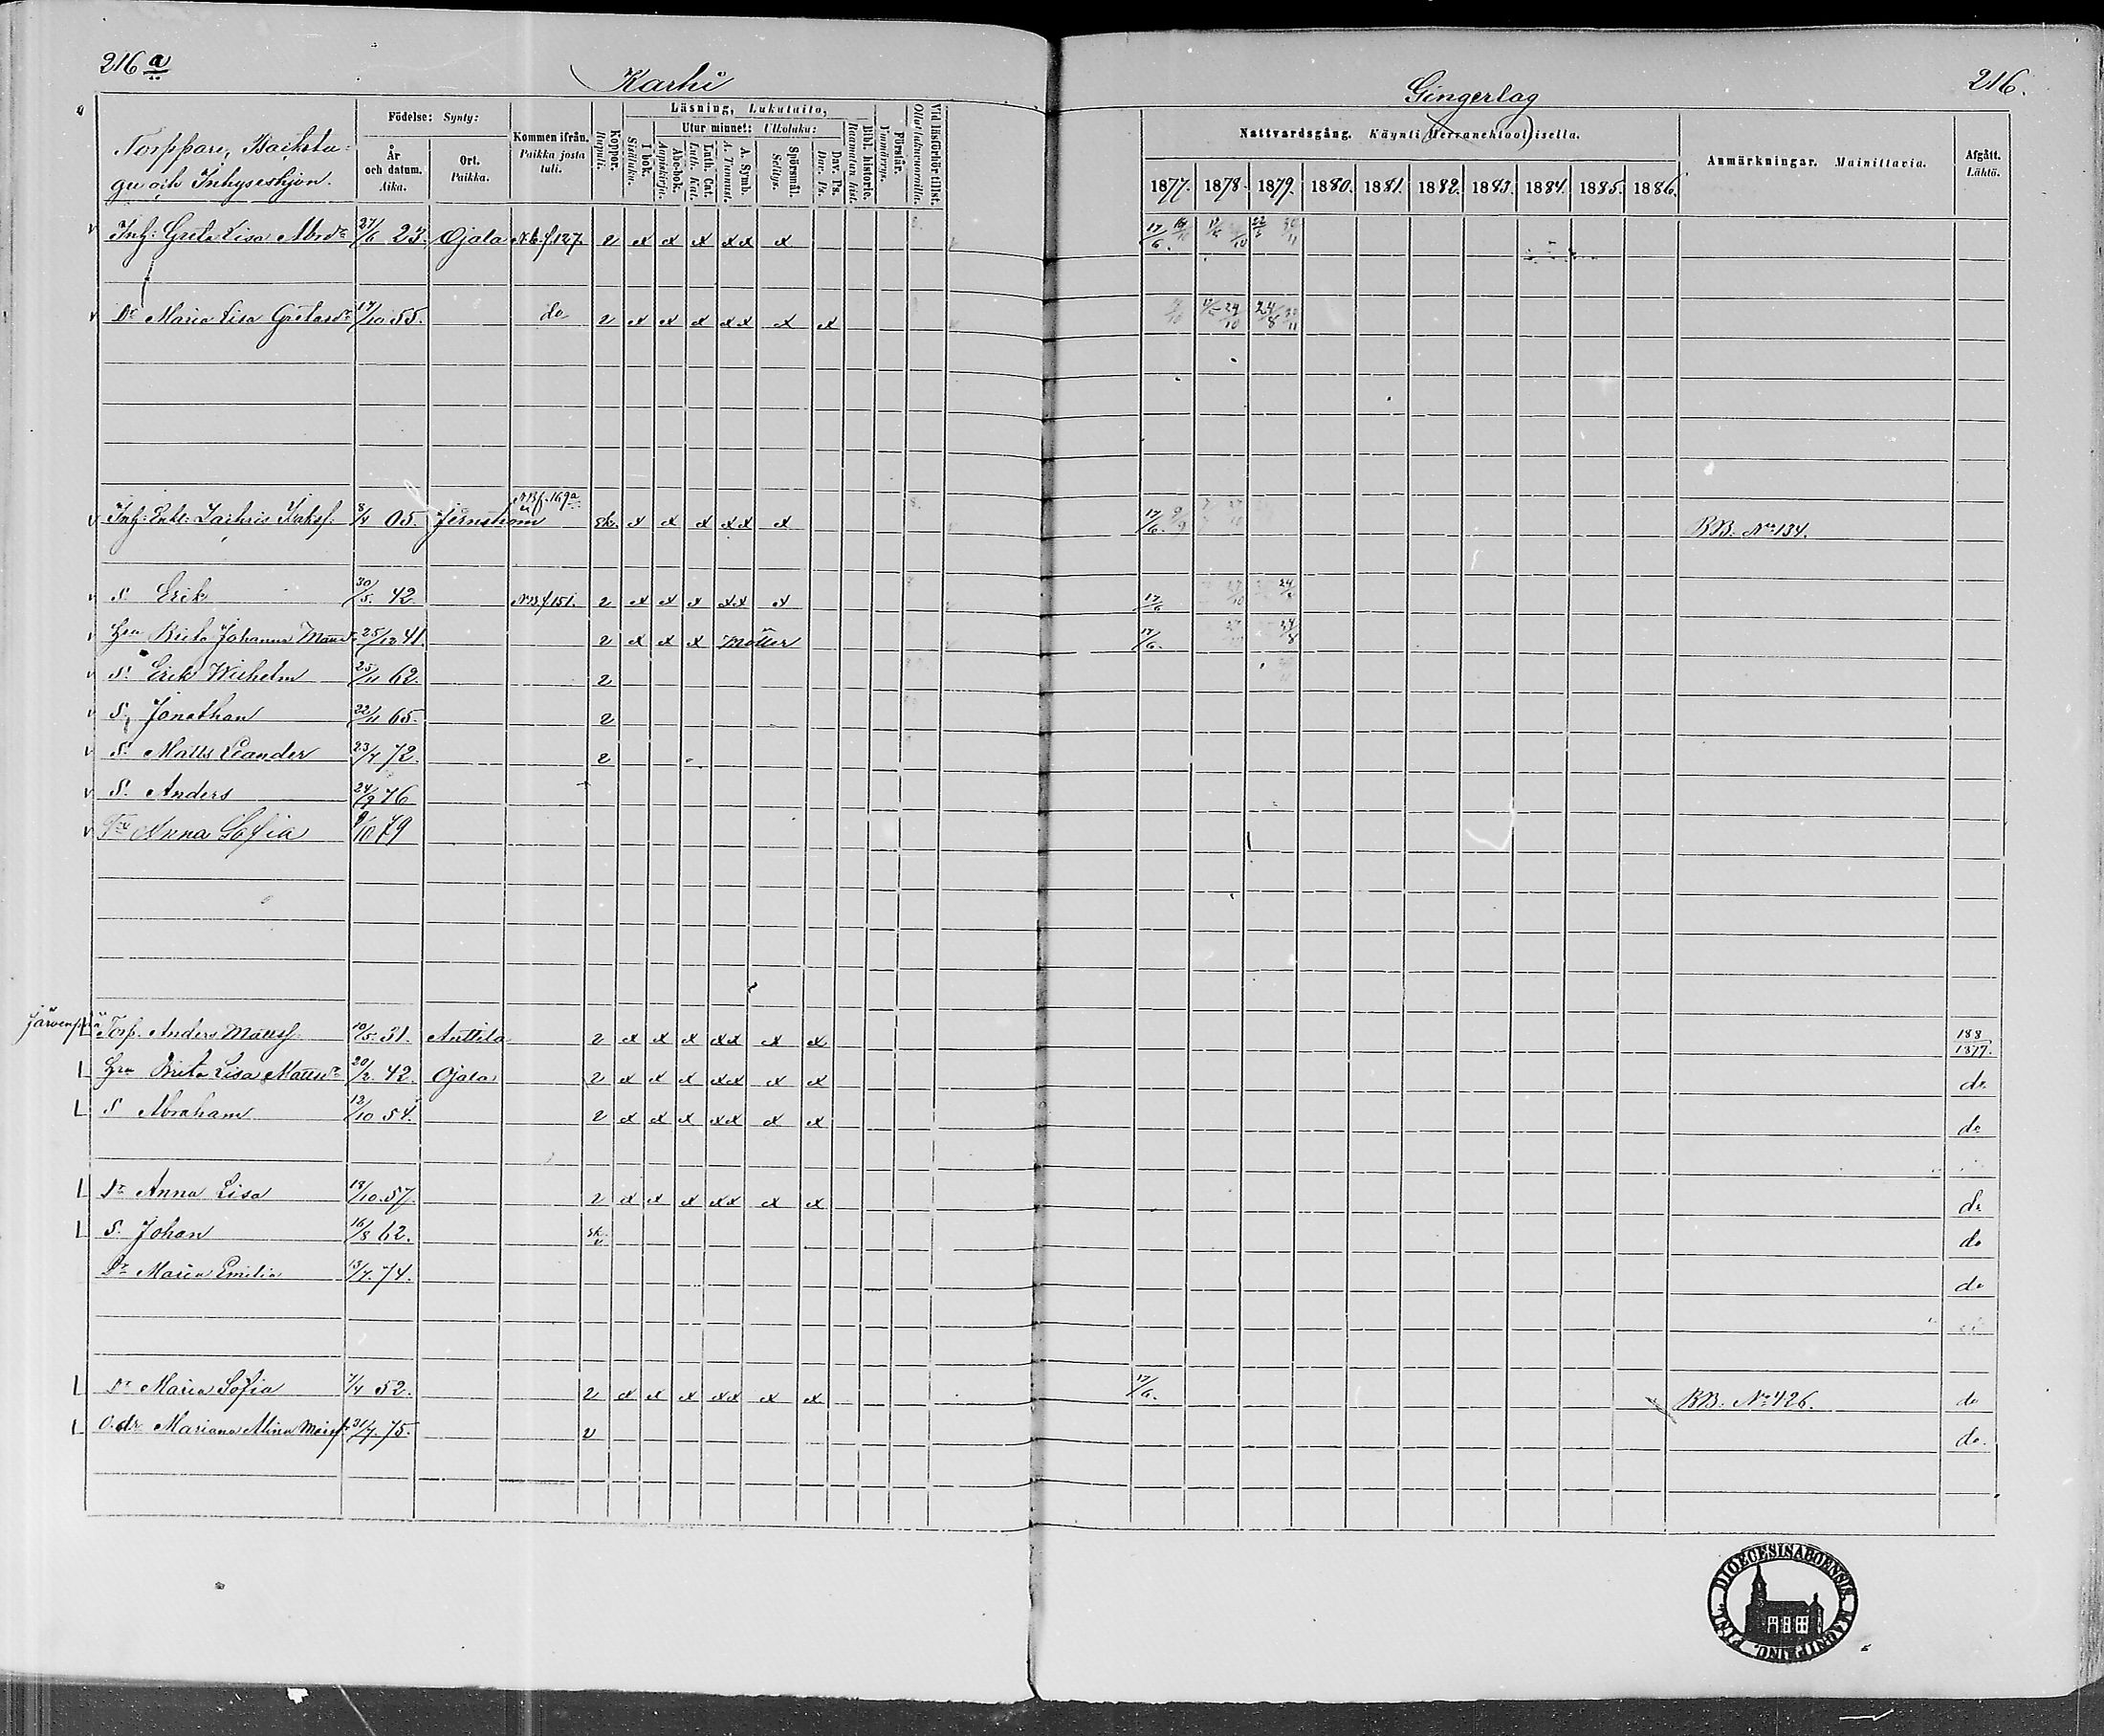 216 a
Karhi
Gingerlag
216.
Torppare, Backstu-
gu och Inhyseshjon.
Födelse: Synty:
År och datum. Aika.
Ort. Paikka.
Kommen ifrån. Paikka josta tuli.
Koppor. Rupuli.
Läsning, Lukutaito,
I bok. Sisäluku.
Utur minnet: Ulkoluku:
Abc-bok. Aapiskirja.
Luth. Cat. Luth. Kat.
A. Symb. A. Tunnust.
Spörsmål. Selitys.
Dav. Ps. Dav. Ps.
Bibl. historie. Raamatun hist.
Förstår. Ymmärrys.
Vid läsförhör tillst. Ollut lukuvuoroilla.
Nattvardsgång. Käynti Herranehtoollisella.
1877. 1878. 1879. 1880. 1881. 1882. 1883. 1884. 1885. 1886.
Anmärkningar. Mainittavia.
Afgått. Lähtö.
v Inh: Greta Lisa Abrdr 27/6 23. Ojala N.b.f.127. 2 x x x xx x 17/6.
v Dr Maria Lisa Gustavdr 17/10 55. do 2 x x x xx x x 24/10 24/8
v Inh: Enkl: 8/4 05. N.B.f. 169a x x x xx x 17/6. 9/9 BB. No 134.
v S. Erik 30/5. 42. N.B.f 151. 2 x x x xx x 17/6
v Hu Brita Johanna Mattsdr 25/12 41. 2 x x x Möller 17/6. 24/8
v S. Erik Wilhelm 25/11 62. 2
v S. Jonathan 22/11 65. 2
v S. Matts Leander 23/4 72. 2
v S. Anders 24/9 76
v Dr Anna Sofia 9/10 79
Järvenpää
L Torp. Anders Mattsf. 10/5. 31. Anttila 2 x x x xx x x 188/1877.
L Hu Brita Lisa Mattsdr 20/2. 42. Ojala 2 x x x xx x x do
L S Abraham 12/10 54. 2 x x x xx x x do
L Dr Anna Lisa 18/10. 57. 2 x x x xx x x do
L S. Johan 16/8 62. do
Dr Maria Emilia 13/7. 74. do
L Dr Maria Sofia 7/4 52. 2 x x x xx x x 17/6. BB. No 426. do
L O. dr Mariana Alina 31/7. 75. v do.
DIOECESIS ABOENSIS
MAGNI PRINC. FINL.